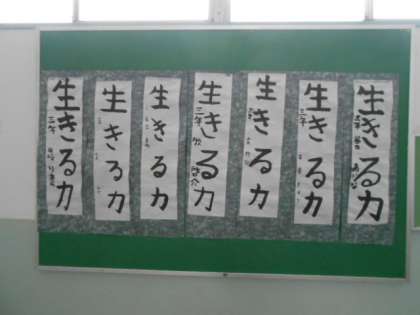 生きる力
生きる力
生きる力
生きる力
三年
生きる力
生きる力
生きる力